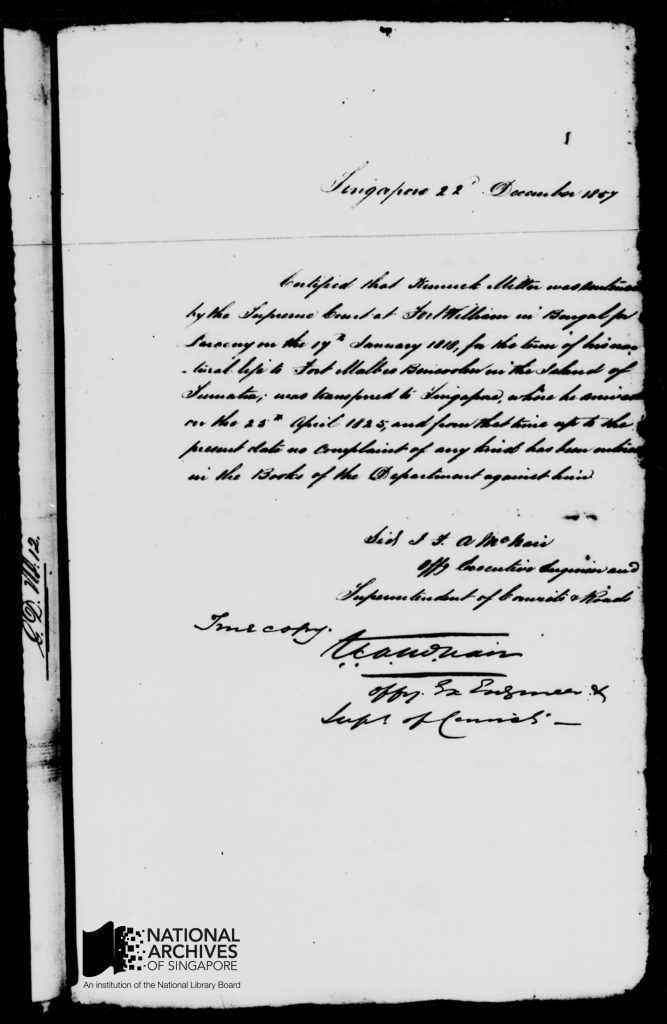 Singapore 22d December 1857
Certified that Kunnuck Mitter was sentenced
by the Supreme Court at Fort William in Bengal for
on the 17th January 1818, for the term of his na-
-tural life to Fort Malbro Bencoolen in the Island of
Sumatra; was transferred to Singapore, where he arrived
on the 25th April 1825, and from that time up to the
present date no complaint of any kind has been entered
in the Books of the Department against him
Sid J F. A McNair
Offg Executive Engineer and
Superintendent of Convicts & Roads
True copy.
McNair
Offg. Ex Engineer &
Supt of Convicts —
G.D. No. 12.
NATIONAL
ARCHIVES
OF SINGAPORE
An institution of the National Library Board